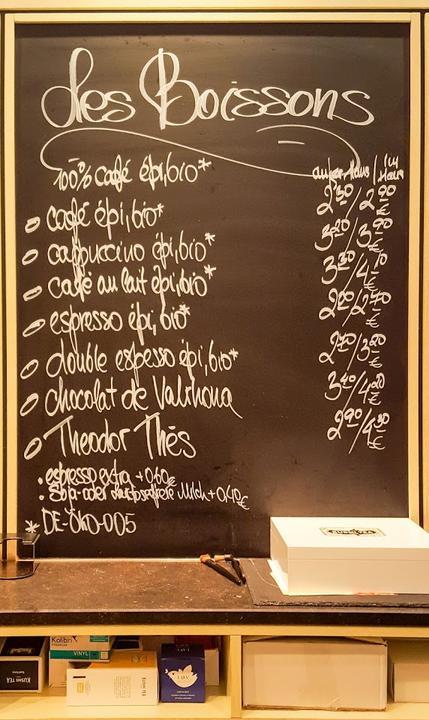 les Boissons
außer Haus / im Haus
100% café épi, bio*
café épi, bio* 2.30/2.90 €
cappuccino épi, bio* 3.20/3.90 €
café au lait épi, bio* 3.30/4.10 €
espresso épi, bio* 2.00/2.40 €
double espesso épi, bio* 2.70/3.20 €
chocolat de Valrhona 3.40/4.20 €
Theodor Thés 2.90/4.30 €
• espresso extra +0,60€
• Soja- oder laktosefreie Milch +0,40€
* DE-ÖKO-005
KUSMI TEA
Kolibri
VINYL
KUSMI TEA
KUSMI TEA
LØV